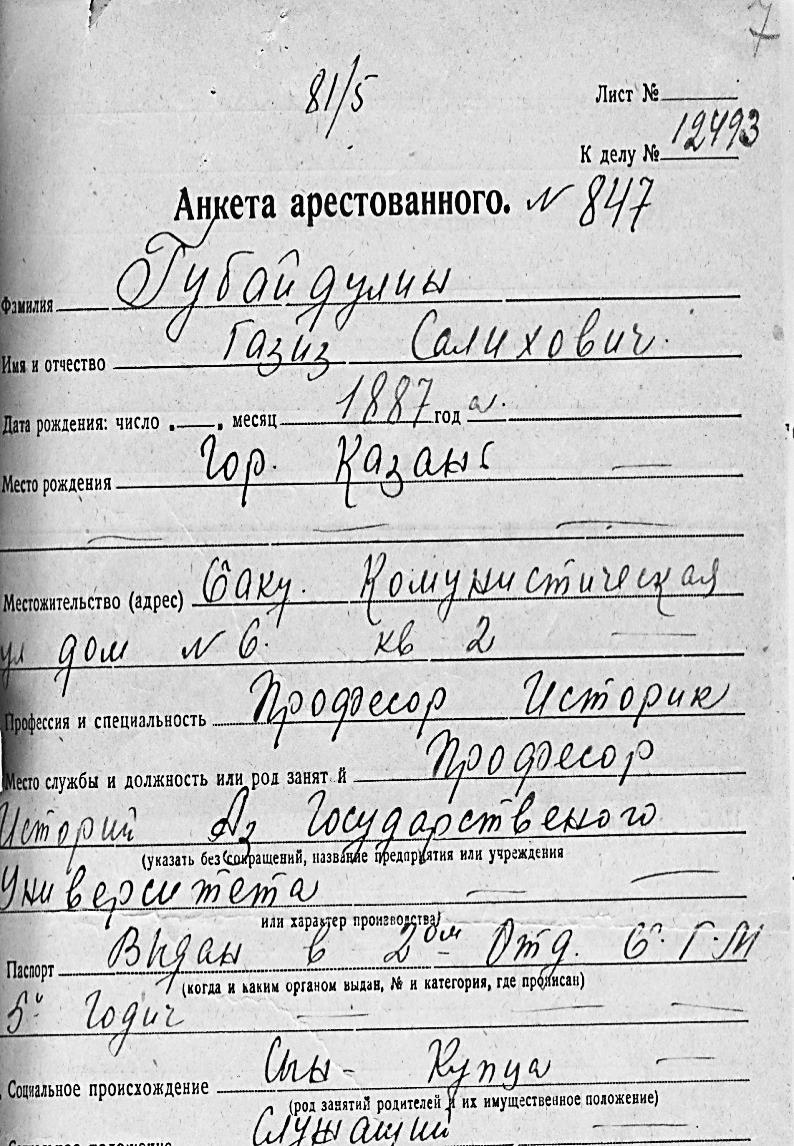 7
81/5
Лист №
К делу № 12493
Анкета арестованного. N 847
Фамилия Губайдулин
Имя и отчество Газиз Салихович.
Дата рождения: число . , месяц 1887 год а.
Место рождения Гор. Казань
Местожительство (адрес) Баку. Комунистическая
ул дом N 6. кв 2
Профессия и специальность Професор Историк
Место службы и должность или род занят й Професор
Историй Аз Государственого
(указать без сокращений, название предприятия или учреждения
Университета
или характер производства)
Паспорт Выдан в 2ом Отд. Б. Г. М
(когда и каким органом выдан, № и категория, где прописан)
5й Годич
Социальное происхождение Сын Купца
(род занятий родителей и их имущественное положение)
Служащий